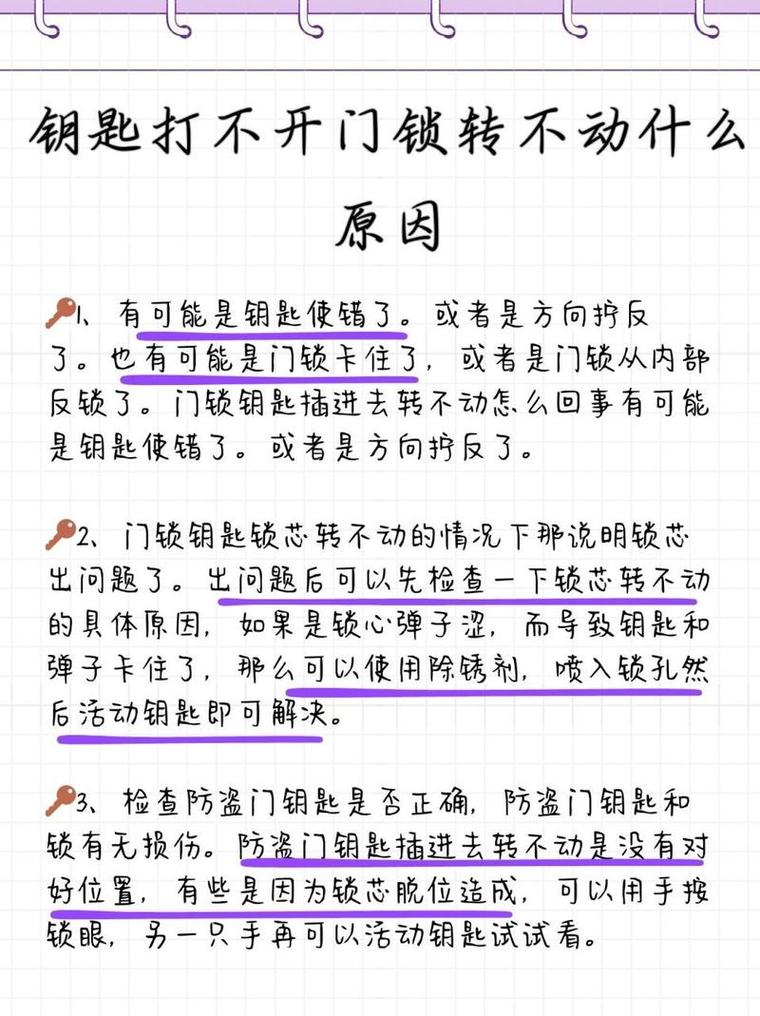 钥匙打不开门锁转不动什么
原因
1、有可能是钥匙使错了。或者是方向拧反
了。也有可能是门锁卡住了，或者是门锁从内部
反锁了。门锁钥匙插进去转不动怎么回事有可能
是钥匙使错了。或者是方向拧反了。
2、门锁钥匙锁芯转不动的情况下那说明锁芯
出问题了。出问题后可以先检查一下锁芯转不动
的具体原因，如果是锁心弹子涩，而导致钥匙和
弹子卡住了，那么可以使用除锈剂，喷入锁孔然
后活动钥匙即可解决。
3、检查防盗门钥匙是否正确，防盗门钥匙和
锁有无损伤。防盗门钥匙插进去转不动是没有对
好位置，有些是因为锁芯脱位造成，可以用手按
锁眼，另一只手再可以活动钥匙试试看。